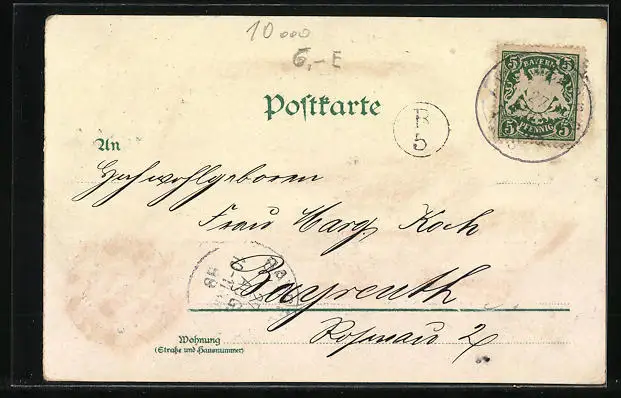 10000
6,-E
Postkarte
B
5
5 BAYERN 5
5 PFENNIG 5
An
Hochwohlgeboren
Frau Marg. Koch
Bayreuth
Rosenau 2
Wohnung
(Straße und Hausnummer)